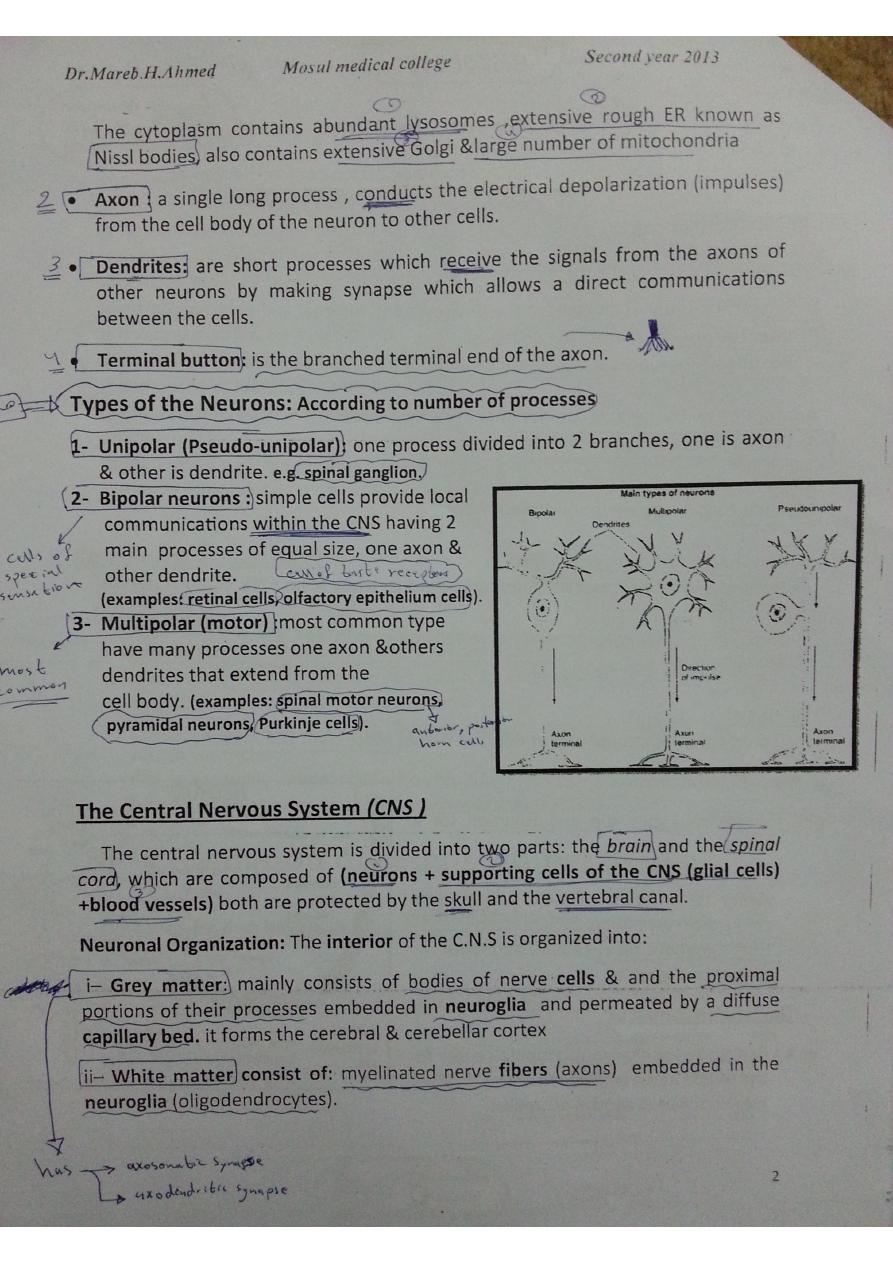 Dr.Mareb.H.Ahmed Mosul medical college Second year 2013
The cytoplasm contains abundant lysosomes ,extensive rough ER known as
Nissl bodies, also contains extensive Golgi &large number of mitochondria
2 • Axon : a single long process , conducts the electrical depolarization (impulses)
from the cell body of the neuron to other cells.
3 • Dendrites: are short processes which receive the signals from the axons of
other neurons by making synapse which allows a direct communications
between the cells.
4 • Terminal button: is the branched terminal end of the axon.
Types of the Neurons: According to number of processes
1- Unipolar (Pseudo-unipolar): one process divided into 2 branches, one is axon
& other is dendrite. e.g. spinal ganglion.
2- Bipolar neurons : simple cells provide local
communications within the CNS having 2
main processes of equal size, one axon &
other dendrite.
cell of taste receptors
(examples: retinal cells, olfactory epithelium cells).
cells of
special
sensation
3- Multipolar (motor) :most common type
have many processes one axon &others
dendrites that extend from the
cell body. (examples: spinal motor neurons,
pyramidal neurons, Purkinje cells).
most
common
anterior, posterior
horn cells
Main types of neurons
Bipolar
Multipolar
Pseudounipolar
Dendrites
Direction
of impulse
Axon
terminal
Axon
terminal
Axon
terminal
The Central Nervous System (CNS )
The central nervous system is divided into two parts: the brain and the spinal
cord, which are composed of (neurons + supporting cells of the CNS (glial cells)
+blood vessels) both are protected by the skull and the vertebral canal.
Neuronal Organization: The interior of the C.N.S is organized into:
i– Grey matter: mainly consists of bodies of nerve cells & and the proximal
portions of their processes embedded in neuroglia and permeated by a diffuse
capillary bed. it forms the cerebral & cerebellar cortex
ii– White matter consist of: myelinated nerve fibers (axons) embedded in the
neuroglia (oligodendrocytes).
has → axosomatic synapse
→ axodendritic synapse
2